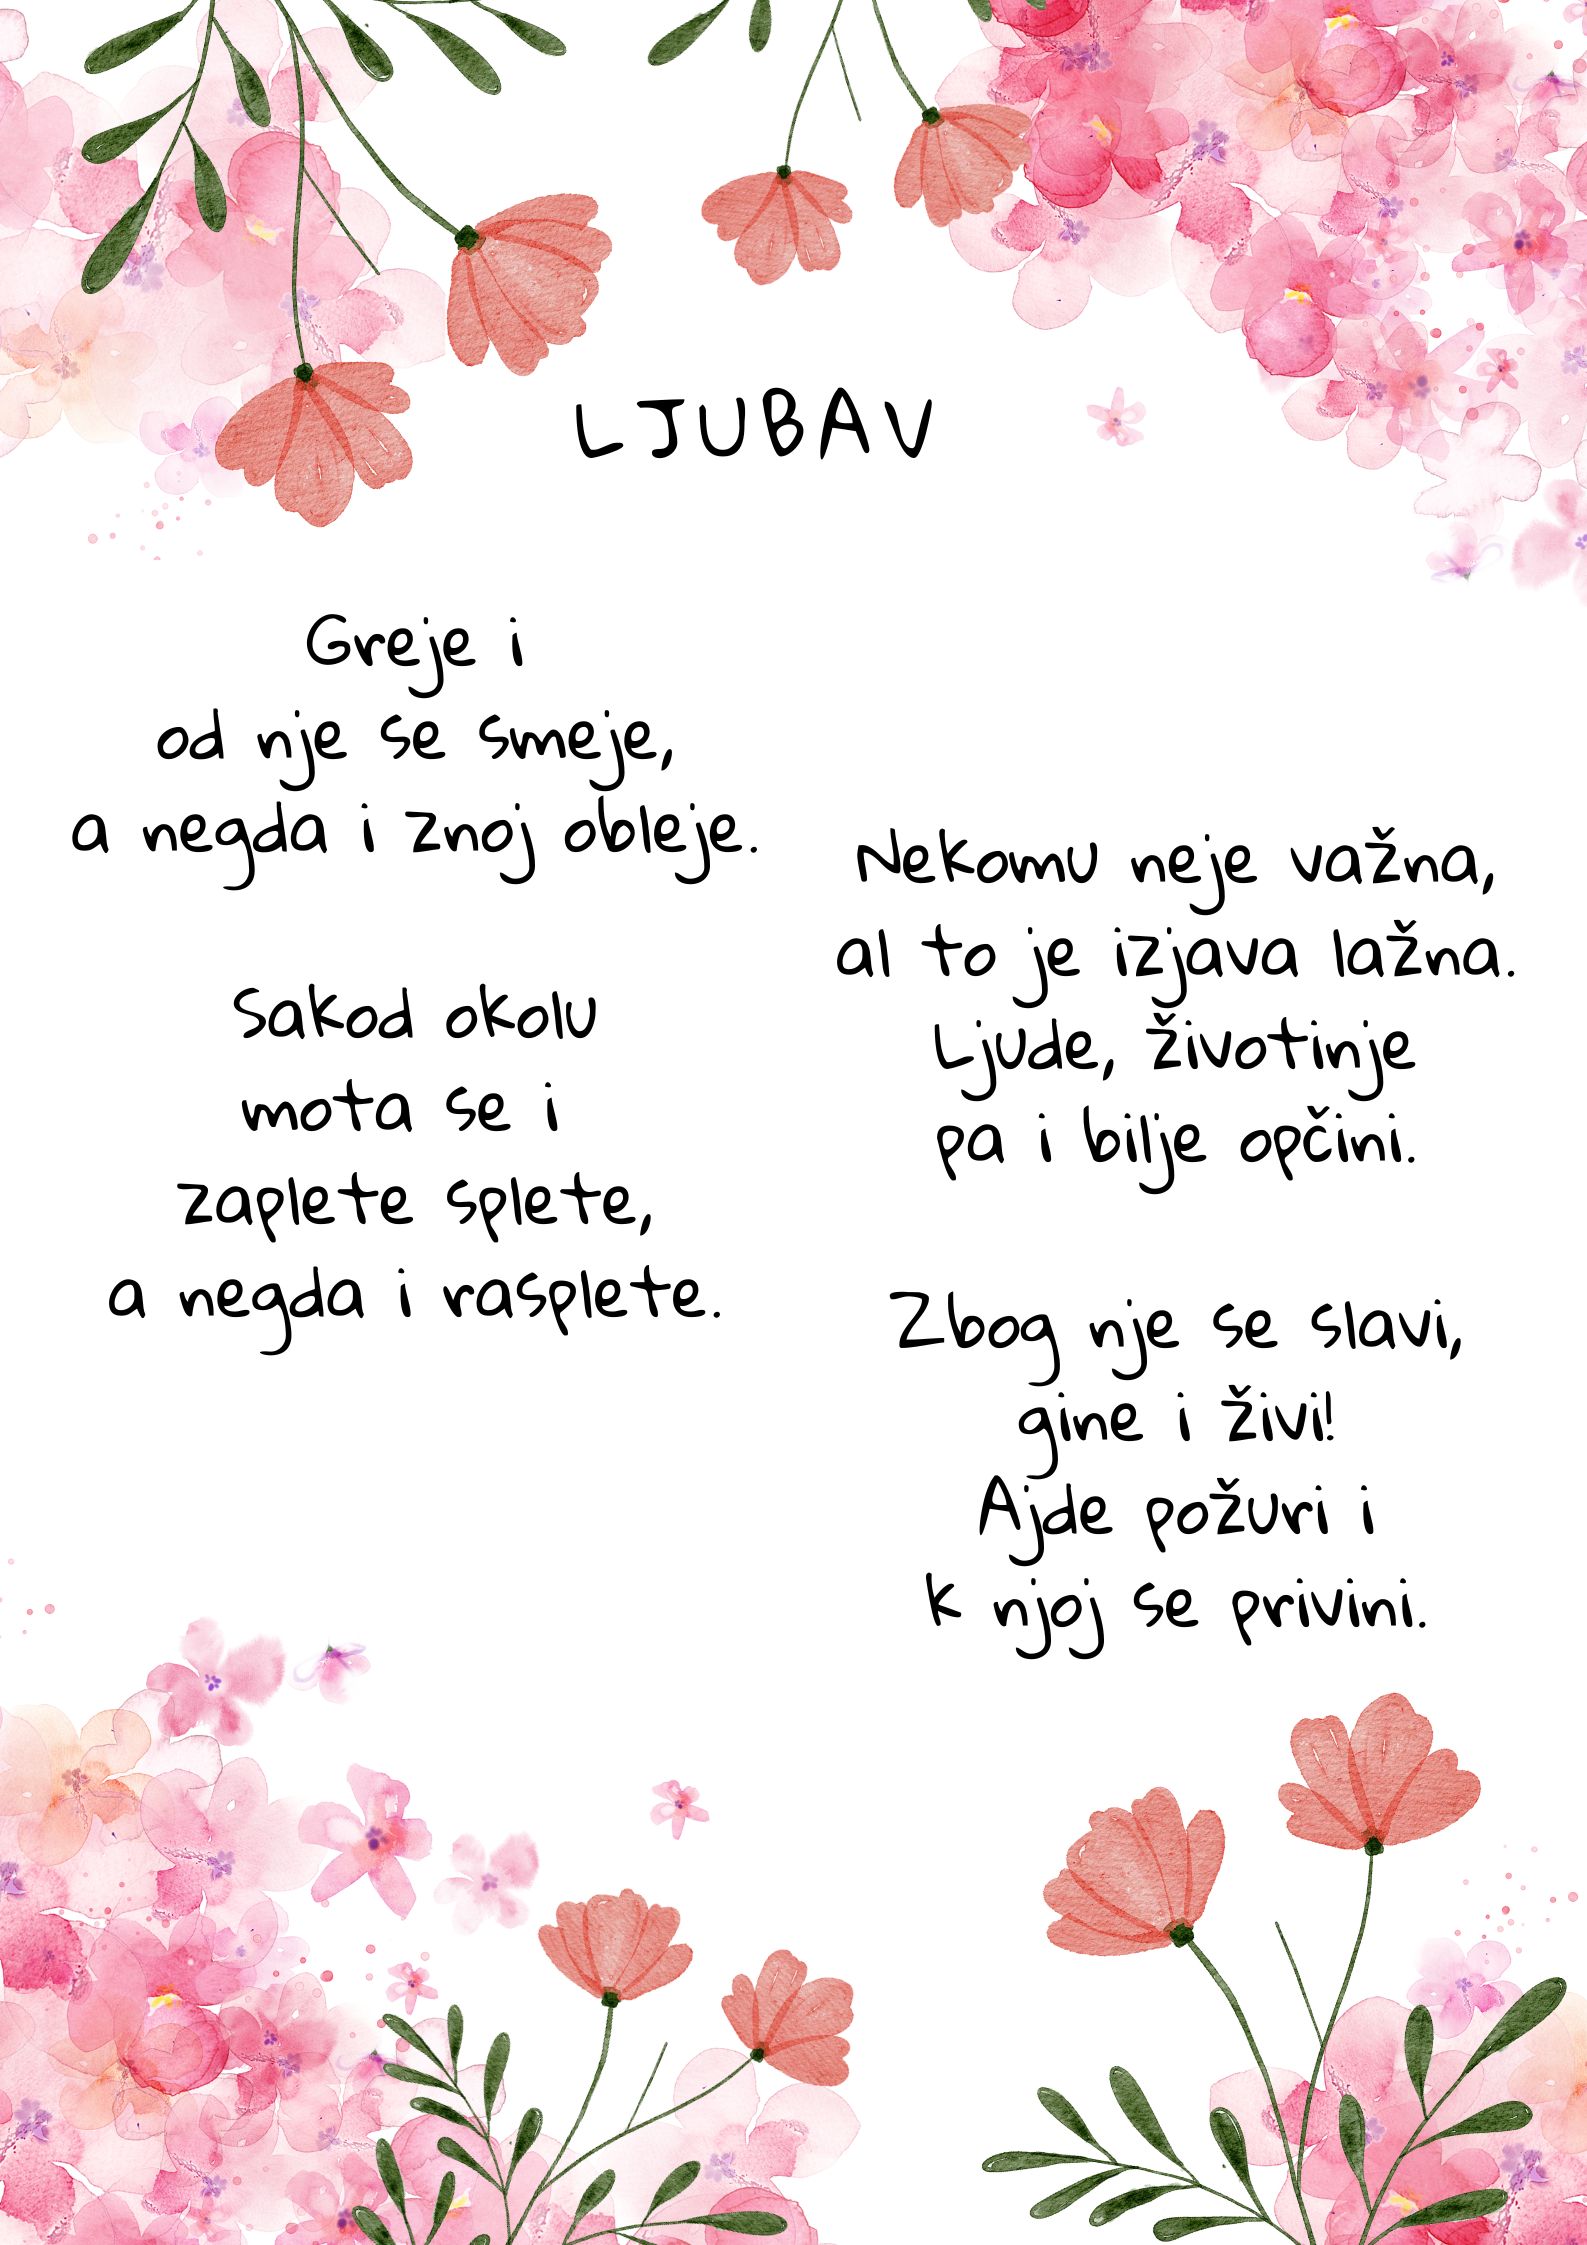 LJUBAV
Greje i
od nje se smeje,
a negda i znoj obleje.
Sakod okolu
mota se i
zaplete splete,
a negda i rasplete.
Nekomu neje važna,
al to je izjava lažna.
Ljude, životinje
pa i bilje opčini.
Zbog nje se slavi,
gine i živi!
Ajde požuri i
k njoj se privini.